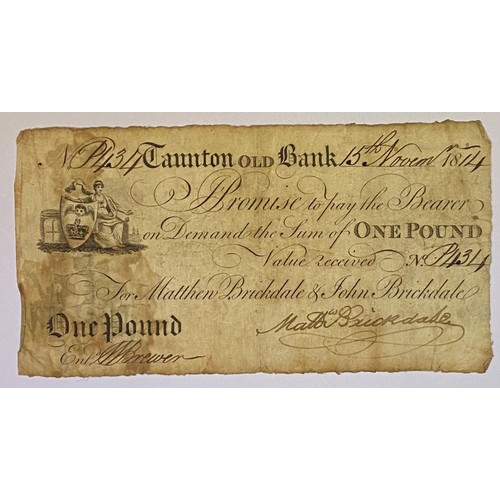 No P434 Taunton Old Bank 15th Novemr 1814
I Promise to pay the Bearer
on Demand the Sum of ONE POUND
Value received No P434
For Matthew Brickdale & John Brickdale
One Pound Mattw Brickdale
Entd Brewer